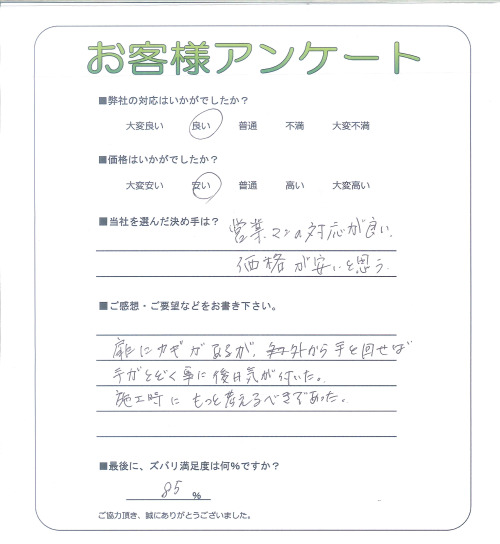 お客様アンケート
■弊社の対応はいかがでしたか？
大変良い 良い 普通 不満 大変不満
■価格はいかがでしたか？
大変安い 安い 普通 高い 大変高い
■当社を選んだ決め手は？ 営業マンの対応が良い.
価格が安いと思う.
■ご感想・ご要望などをお書き下さい。
扉にカギがあるが、外から手を回せば
手がとどく事に後日気が付いた。
施工時にもっと考えるべきであった。
■最後に、ズバリ満足度は何％ですか？
85 %
ご協力頂き、誠にありがとうございました。